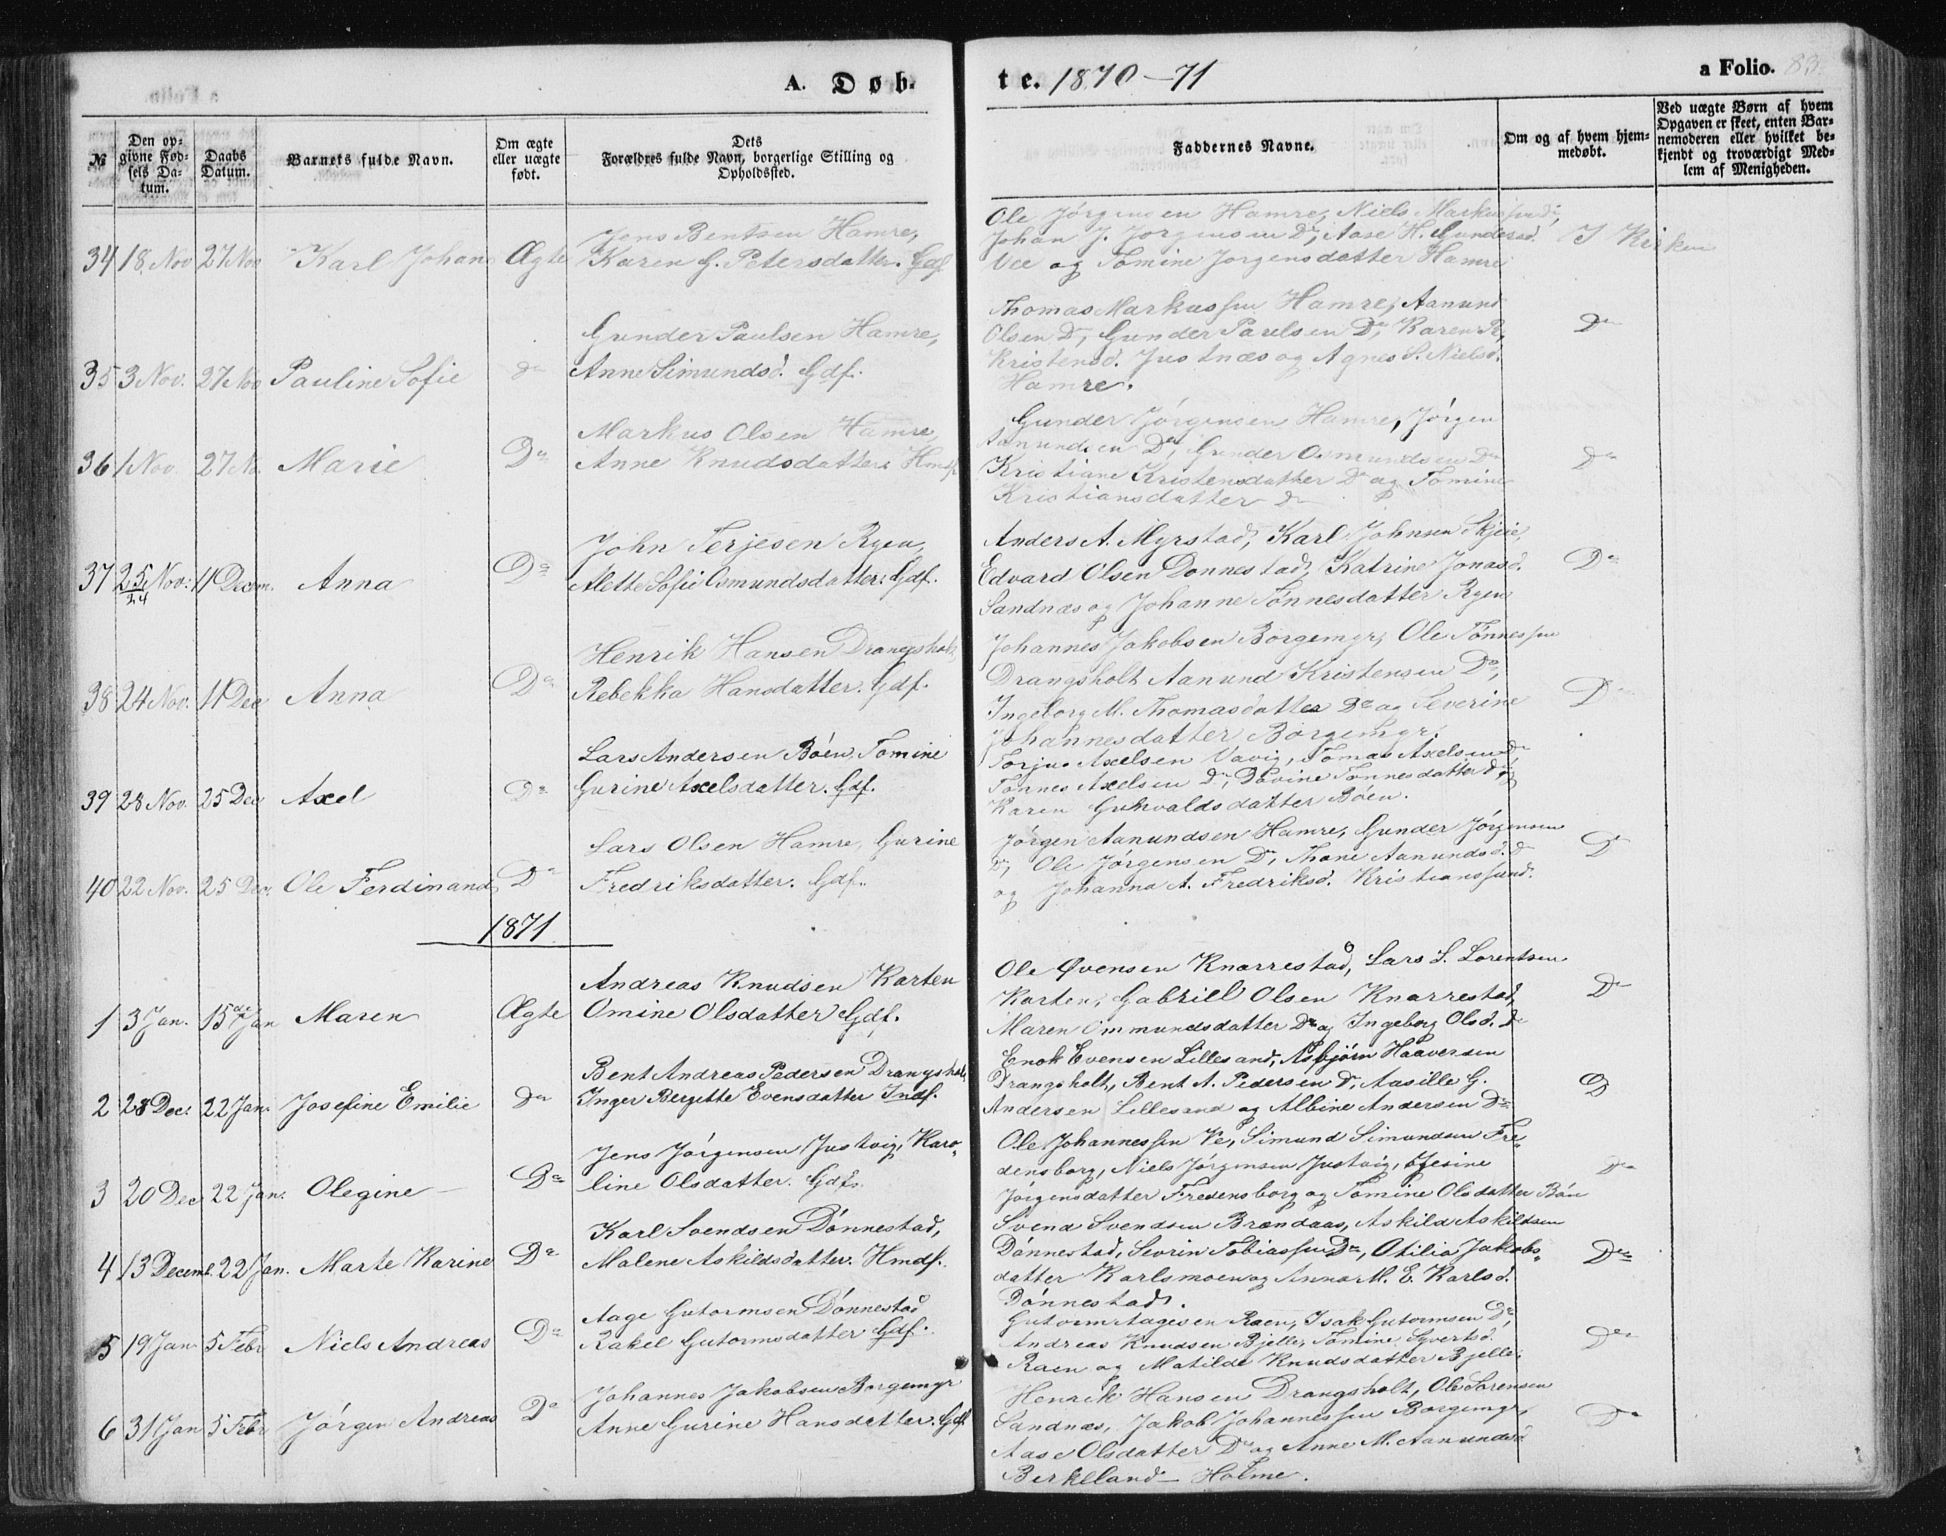 A. Døb-
te. 1870-71
a Folio. 83.
№
Den opgivne Fødsels Datum.
Daabs Datum.
Barnets fulde Navn.
Om ægte eller uægte født.
Dets Forældres fulde Navn, borgerlige Stilling og Opholdssted.
Faddernes Navne.
Om og af hvem hjemmedøbt.
Ved uægte Børn af hvem Opgaven er skeet, enten Barnemoderen eller hvilket bekjendt og troværdigt Medlem af Menigheden.
34 18 Nov 27 Nov Karl Johan Ægte
Jens Bentsen Hamre,
Karen G. Petersdatter. Gdf
Ole Jørgensen Hamre, Niels Markussen Do,
Johan J. Jørgensen Do, Aase H. Gundersd.
Vee og Tomine Jørgensdatter Hamre
I Kirken
35 3 Nov. 27 Nov Pauline Sofie do
Gunder Paulsen Hamre,
Anne Simundsd. Gdf.
Thomas Markussen Hamre, Aanund
Olsen Do, Gunder Paulsen Do, Karen R.
Kristensd. Justnæs og Agnes S. Nielsd.
Hamre.
Do
36 1 Nov. 27 No. Marie Do
Markus Olsen Hamre,
Anne Knudsdatter. Hmdf
Gunder Jørgensen Hamre, Jørgen
Aanundsen Do, Gunder Osmundsen Do
Kristiane Kristensdatter Do og Tomine
Kristiansdatter do
Do
37 25/24 Nov: 11 Decem. Anna Do
John Terjesen Ryen,
Alette Sofie Osmundsdatter. Gdf.
Anders A. Myrstad, Karl Johnsen Skjeie,
Edvard Olsen Donnestad, Katrine Jonasd.
Sandnæs og Johanne Tønnesdatter Ryen
Do
38 24 Nov. 11 Dec Anna Do
Henrik Hansen Drangsholt,
Rebekka Hansdatter. Gdf.
Johannes Jakobsen Borgemyr, Ole Tønnessen
Drangsholt Aanund Kristensen Do,
Ingeborg M. Thomasdatter Do og Severine
Johannesdatter Borgemyr.
Do
39 28 Nov. 25 Dec Axel Do
Lars Andersen Bóen, Tomine
Gurine Axelsdatter. Gdf.
Torjus Axelsen Vavig, Tomas Axelsen do
Tønnes Axelsen Do, Tomine Tønnesdatter do, og
Karen Guhvaldsdatter Bóen.
40 22 Nov. 25 Dec. Ole Ferdinand Do
Lars Olsen Hamre, Gurine
Fredriksdatter. Gdf.
Jørgen Aanundsen Hamre, Gunder Jørgensen
Do, Ole Jørgensen Do, Thone Aanundsd. do
og Johanna A. Fredriksd. Kristianssund.
Do
1871
1 3 Jan. 15de Jan Maren Ægte
Andreas Knudsen Karten
Omine Olsdatter Gdf.
Ole Øvensen Knarrestad, Lars S. Lorentsen
Karten, Gabriell Olsen Knarrestad,
Maren Ommundsdatter Do og Ingeborg Olsd. do
Do
2 28 Dec. 22 Jan. Josefine Emilie do
Bent Andreas Pedersen Drangsholt,
Inger Bergitte Evensdatter Indf.
Enok Evensen Lillesand, Asbjörn Haaversen
Drangsholt, Bent A. Pedersen Do, Aasille G.
Andersen Lillesand og Albine Andersen Do
D
3 20 Dec 22 Jan. Olegine Do
Jens Jörgensen Justvig, Karo-
line Olsdatter. Gdf.
Ole Johannessen Ve, Simund Simundsen Fre-
densborg, Niels Jörgensen Justvig, Gesine
Jörgensdatter Fredensborg og Tomine Olsdatter Bóen
Do
4 13 Decemb. 22 Jan. Marte Karine Do
Karl Svendsen Dönnestad,
Malene Askildsdatter. Hmdf.
Svend Svendsen Brændaas, Askild Askildsen
Dönnestad, Sevrin Tobiassen Do, Otilia Jakobs-
datter Karlsmoen og Anna M. E. Karlsd.
Dönnestad.
Do
5 19 Jan 5 Febr Niels Andreas Do
Aage Gutormsen Dönnestad
Rakel Gutormsdatter Gdf.
Gutorm Aagesen Raen, Isak Gutormsen Do,
Andreas Knudsen Bjelle, Tomine Syvertsd.
Raen og Matilde Knudsdatter Bjelle.
Do
6 31 Jan 5 Febr Jörgen Andreas Do
Johannes Jakobsen Borgemyr
Anne Gurine Hansdatter. Gdf
Henrik Hansen Drangsholt, Ole Sorensen
Sandnæs, Jakob Johannessen Borgemyr,
Aase Olsdatter Do og Anne M. Aanundsd.
Berkeland - Holme.
Do